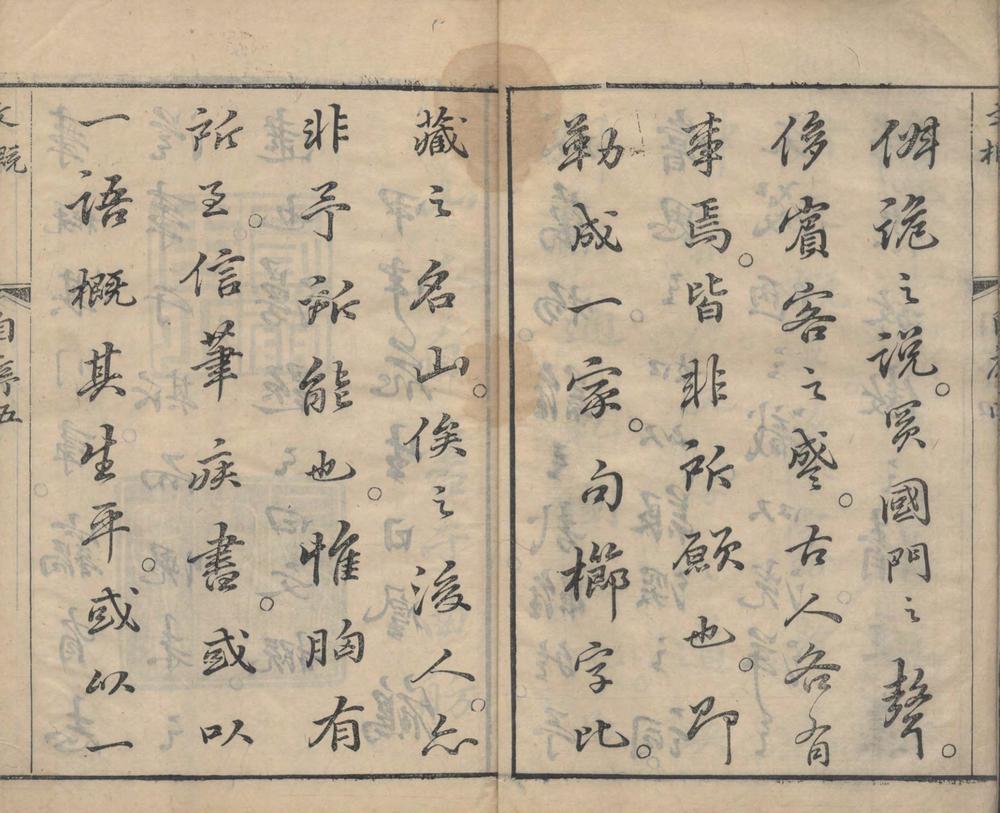 俶詭之說買國門之聲
侈賓客之盛古人各有
事焉皆非所願也即
勒成一家句櫛字比
藏之名山俟之後人亦
非予所能也惟胸有
所至信筆疾書或以
一語概其生平或以一
自序五